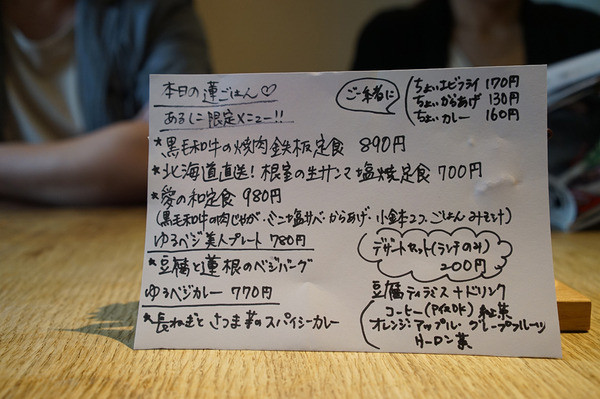 本日の蓮ごはん♡
あるしに限定メニュー!!
★黒毛和牛の焼肉鉄板定食 890円
★北海道直送!根室の生サンマ塩焼定食 700円
★愛の和定食 980円
(黒毛和牛の肉じゃが・ミニ塩サバ・からあげ・小鉢2コ・ごはんみそ汁)
ゆるベジ美人プレート 780円
★豆腐と蓮根のベジバーグ
ゆるベジカレー 770円
★長ねぎとさつま芋のスパイシーカレー
ご一緒に
ちょいエビフライ 170円
ちょいからあげ 130円
ちょいカレー 160円
デザートセット(ランチのみ)
200円
豆腐ティラミス+ドリンク
コーヒー(アイスOK) 紅茶
オレンジ・アップル・グレープフルーツ
ウーロン茶